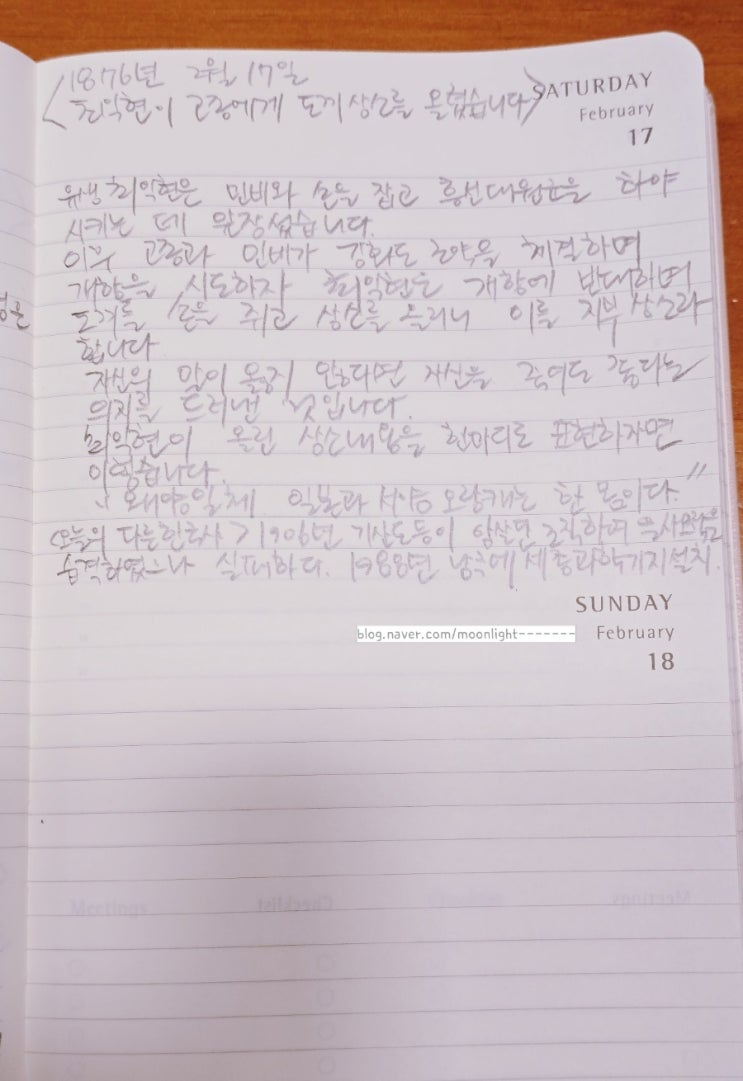 1876년 2월 17일
<최익현이 고종에게 도끼상소를 올렸습니다>
SATURDAY
February
17
유생 최익현은 민비와 손을 잡고 흥선대원군을 하야
시키는 데 앞장섰습니다.
이후 고종과 민비가 강화도 조약을 체결하며
개항을 시도하자 최익현은 개항에 반대하며
도끼를 손을 쥐고 상소를 올리니 이를 지부상소라
합니다
자신의 말이 옳지 않다면 자신을 죽여도 좋다는
의지를 드러낸 것입니다.
최익현이 올린 상소내용을 한마디로 표현하자면
이렇습니다.
"왜양일체 일본과 서양 오랑캐는 한 몸이다."
<오늘의 다른한국사> 1906년 기산도등이 암살단 조직하여 을사오적을
습격하였으나 실패하다. 1988년 남극에 세종과학기지설치.
SUNDAY
blog.naver.com/moonlight-------
February
18
Meetings
Checklist
Meetings